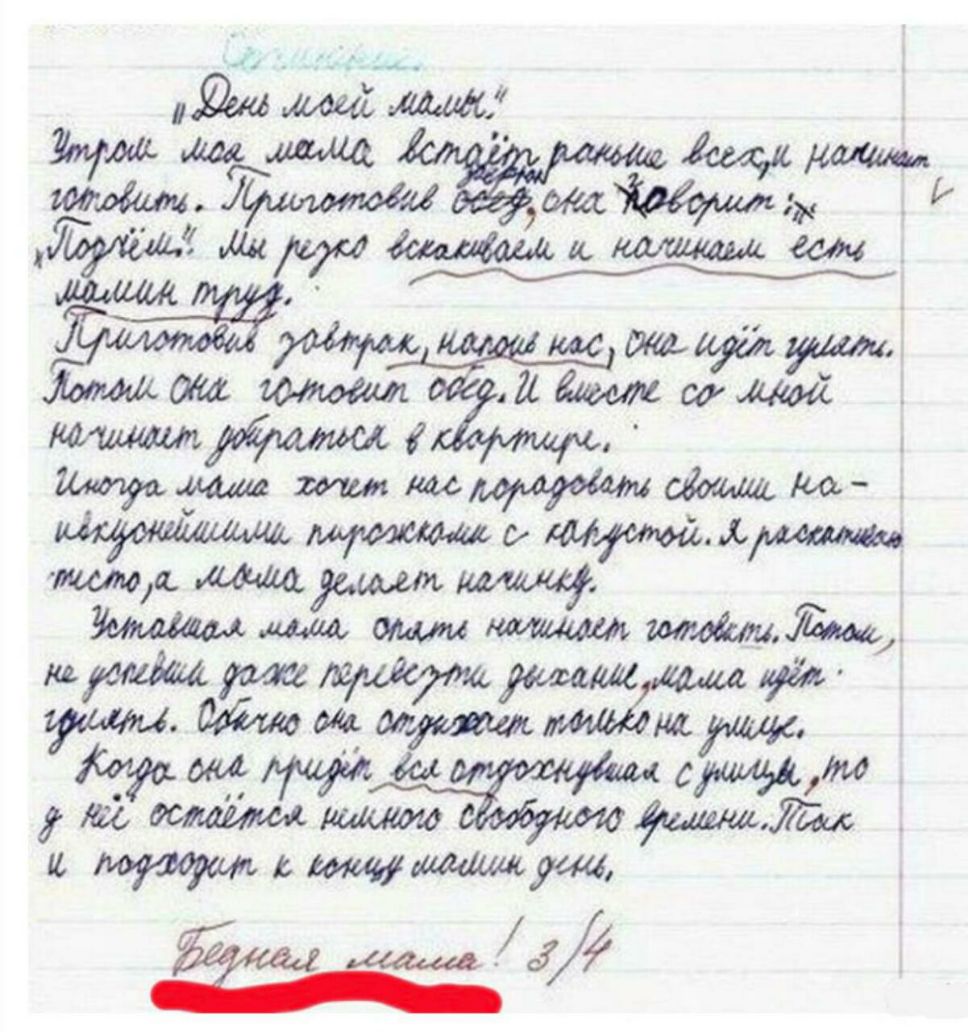 Сочинение.
„День моей мамы."
Утром моя мама встаёт раньше всех, и начинает
готовить. Приготовив завтрак, она говорит:
„Подъём". Мы резко вскакиваем и начинаем есть
мамин труд.
Приготовив завтрак, напоив нас, она идёт гулять.
Потом она готовит обед. И вместе со мной
начинает убираться в квартире.
Иногда мама хочет нас порадовать своими на-
ивкуснейшими пирожками с капустой. Я раскатываю
тесто, а мама делает начинку.
Уставшая мама опять начинает готовить. Потом,
не успевши даже перевезти дыхание, мама идёт
гулять. Обычно она отдыхает только на улице.
Когда она придёт вся отдохнувшая с улицы, то
у неё остаётся немного свободного времени. Так
и подходит к концу мамин день.
Бедная мама! 3/4